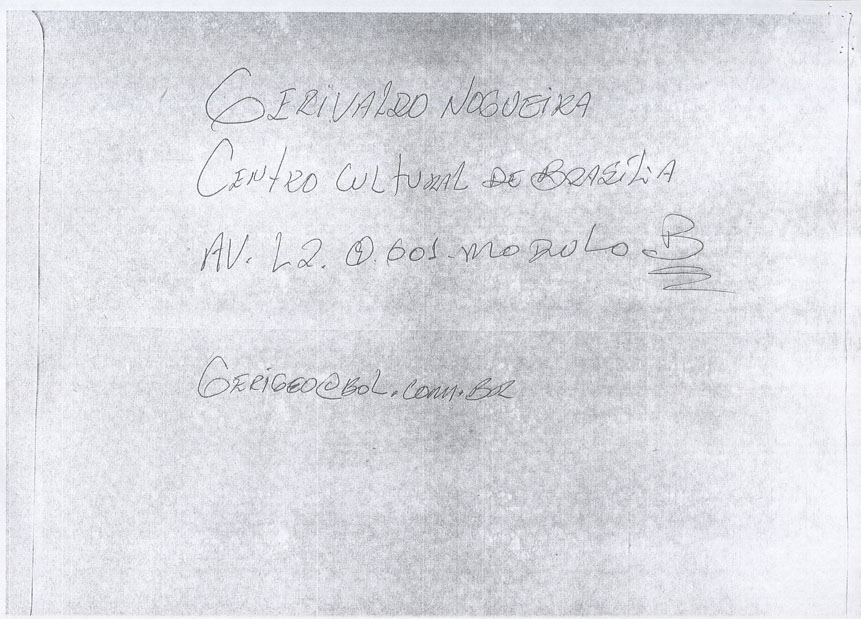 GERIVALDO NOGUEIRA
CENTRO CULTURAL DE BRASÍLIA
AV. L2. Q. 601. MODULO. B
GERIGEO@BOL.COM.BR